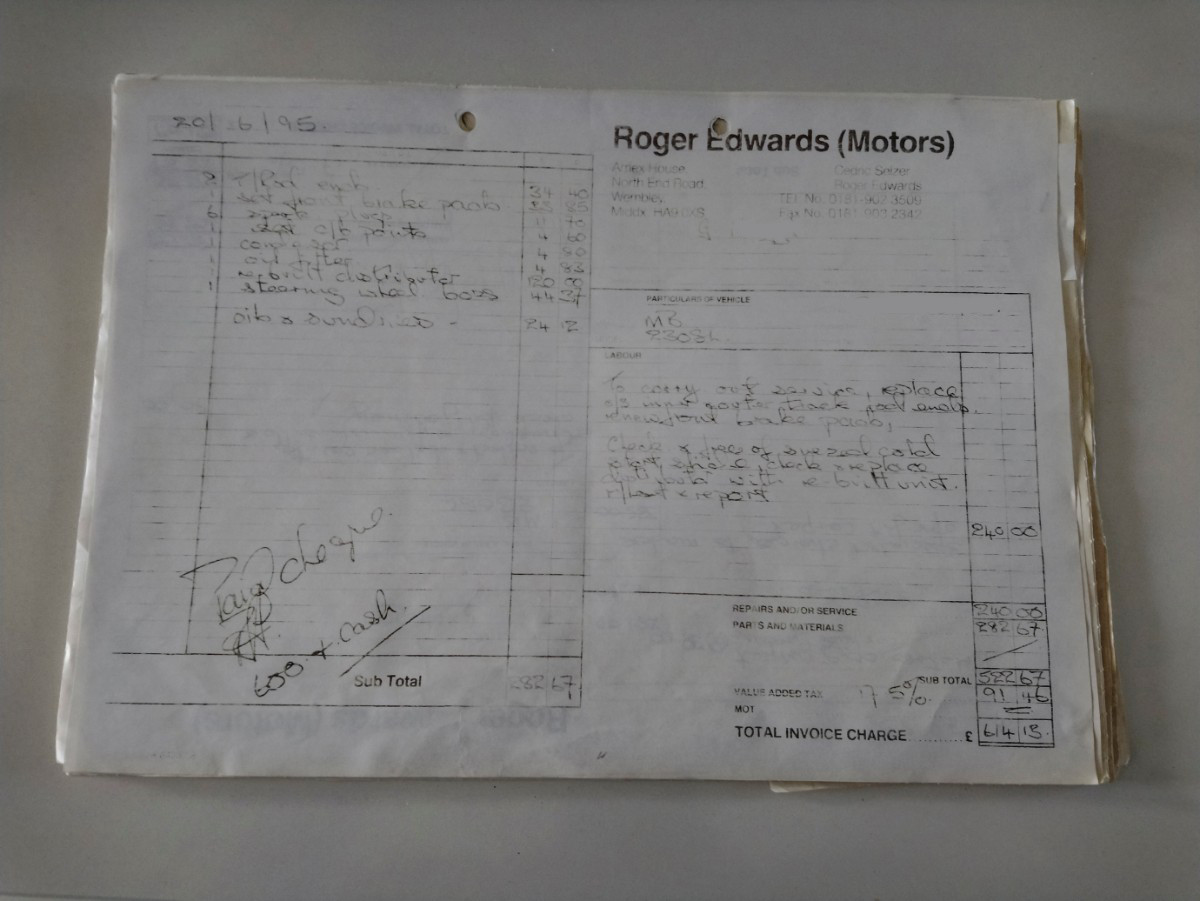 20/6/95
2 T/Rod ends 34 40
set front brake pads
6 plugs
1 set c/b points 4 60
1 4 80
1 oil filter 4 83
1 re-built distributer
1 steering wheel boss 44 37
oils & sundries - 24 12
Paid cheque.
600. + cash.
Sub Total 282 67
Roger Edwards (Motors)
Annex House
North End Road
Wembley
Middx. HA9 0XS
Cedric Selzer
Roger Edwards
TEL No. 0181-902 3509
Fax No. 0181-903 2342
PARTICULARS OF VEHICLE
MB
230SL
LABOUR
To carry out service, replace
o/s inner & outer track rod ends.
renew front brake pads,
Check & free off seized cold
start, check & replace
distributer with re-built unit.
r/test & report
240 00
REPAIRS AND/OR SERVICE 240 00
PARTS AND MATERIALS 282 67
SUB TOTAL 522 67
VALUE ADDED TAX 17.5%. 91 46
MOT
TOTAL INVOICE CHARGE .......... £ 614 13.